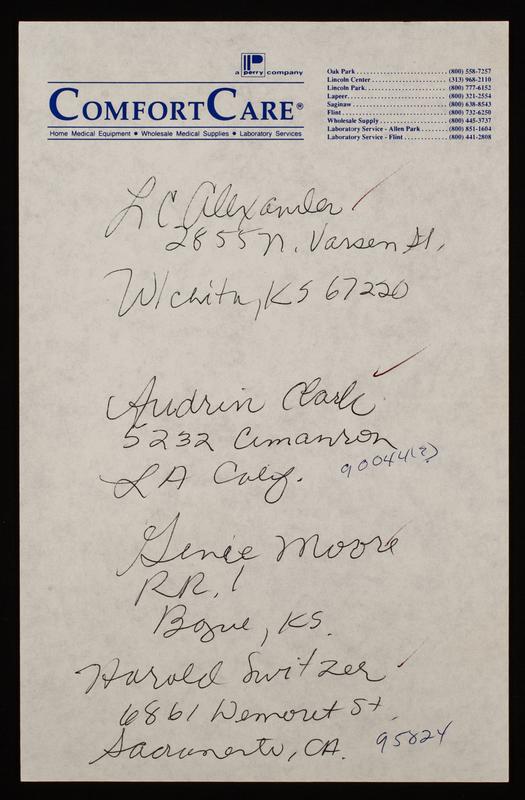 a perry company
COMFORTCARE®
Home Medical Equipment • Wholesale Medical Supplies • Laboratory Services
Oak Park (800) 558-7257
Lincoln Center (313) 968-2110
Lincoln Park (800) 777-6152
Lapeer (800) 321-2554
Saginaw (800) 638-8543
Flint (800) 732-6250
Wholesale Supply (800) 445-3737
Laboratory Service - Allen Park (800) 851-1604
Laboratory Service - Flint (800) 441-2808
L C Alexander
2855 N. Vassen St,
Wichita, KS 67220
Audrin Clark
5232 Cimanron
LA Calif. 90044(?)
Genie Moore
RR. 1
Bogue, KS.
Harold Switzer
6861 Demoret St
Sacramento, CA. 95824